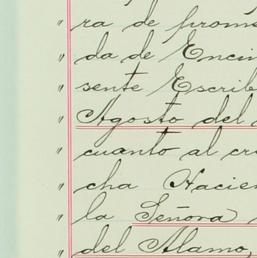 " ra de prom
" da de Encin
" sente Escrib
" Agosto del
" cuanto al cr
" cha Hacien
" la Señora
" del Alamo,